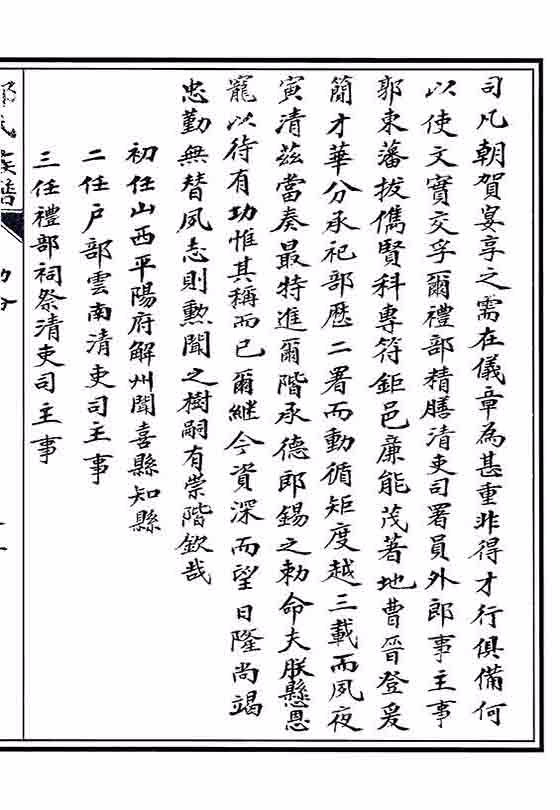 司凡朝賀宴享之需在儀章為甚重非得才行俱備何
以使文實交孚爾禮部精膳清吏司署員外郎事主事
郭東藩拔儁賢科專符鉅邑廉能茂著地曹晉登爰
簡才華分承祀部歷二署而動循矩度越三載而夙夜
寅清茲當奏最特進爾階承德郎錫之勅命夫朕懸恩
寵以待有功惟其稱而已爾繼今資深而望日隆尚竭
忠勤無替夙志則勲聞之樹嗣有崇階欽哉
初任山西平陽府解州聞喜縣知縣
二任户部雲南清吏司主事
三任禮部祠祭清吏司主事
氏族譜